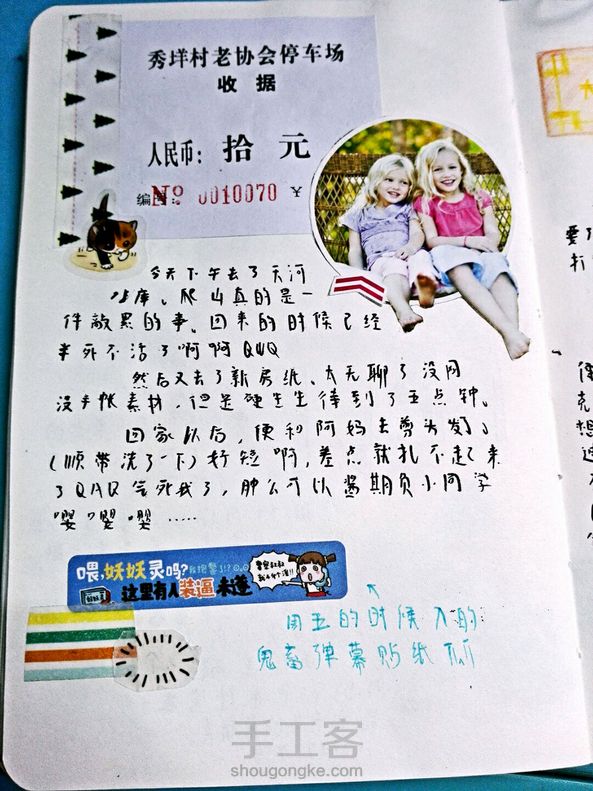 秀垟村老协会停车场
收据
人民币: 拾 元
编号: Nº 0010070 ¥
今天下午去了天河
水库、爬山真的是一
件敲累的事、回来的时候已经
半死不活了啊啊QUQ
然后又去了新房纸、太无聊了没网
没手帐素材，但是硬生生待到了五点钟。
回家以后，便和阿妈去剪头发了
(顺带洗了一下)好短啊,差点就扎不起来
了QAQ气死我了，肿么可以酱期负小同学
嘤嘤嘤……
喂,妖妖灵吗?我报警!?
警察叔叔
这里有人装逼未遂
周五的时候入的
鬼畜弹幕贴纸
手工客
shougongke.com
要
打
便
克
想